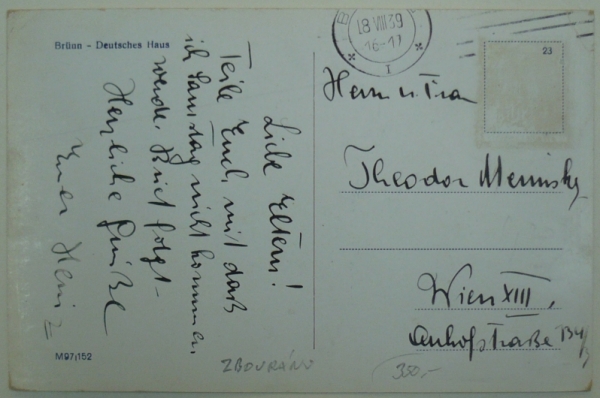 Brünn - Deutsches Haus
Liebe Eltern!
Teile Euch mit daß
ich Samstag nicht kommen
werde. Brief folgt -
Herzliche Grüße
Euer Heinz
M97/152
18 VIII 39
16-17
I
23
Herrn u. Frau
Theodor
Wien XIII,
ZBOURÁNO
350,-